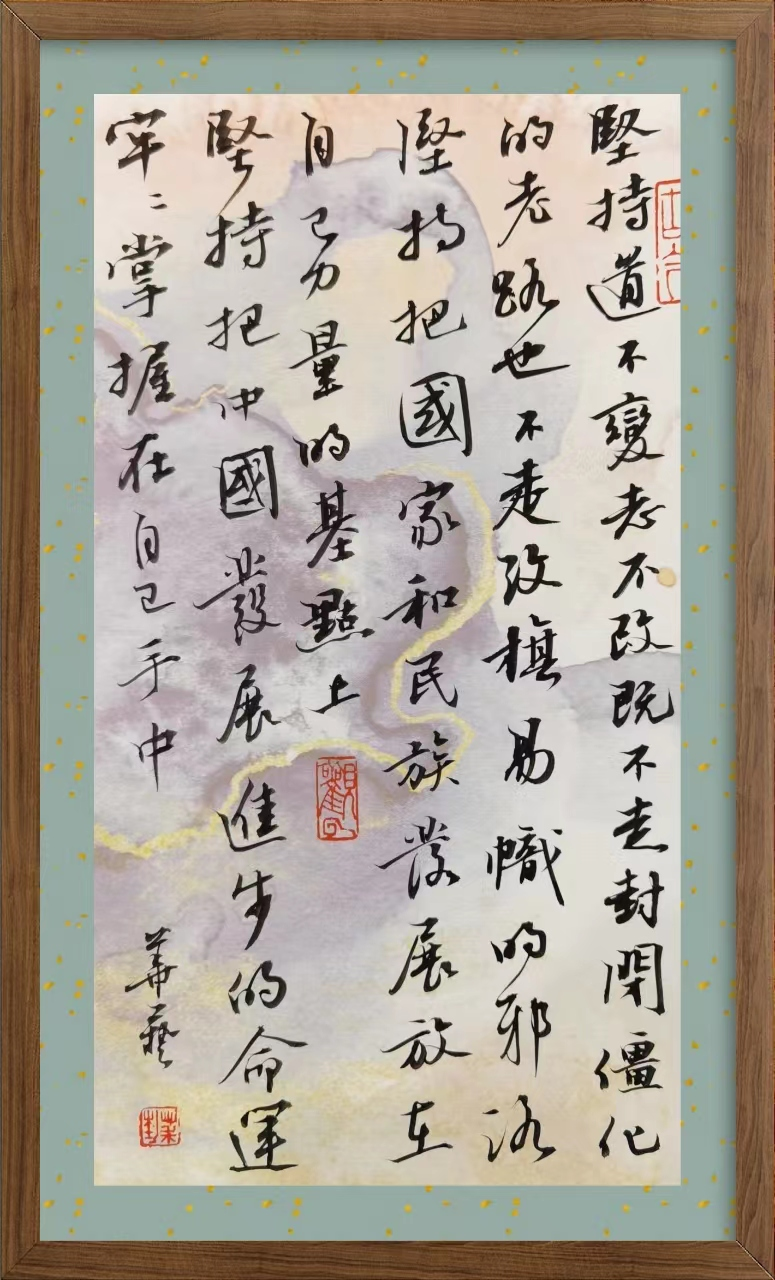 堅持道不變志不改既不走封閉僵化
的老路也不走改旗易幟的邪路
堅持把國家和民族發展放在
自己力量的基點上
堅持把中國發展進步的命運
牢々掌握在自己手中
華藝